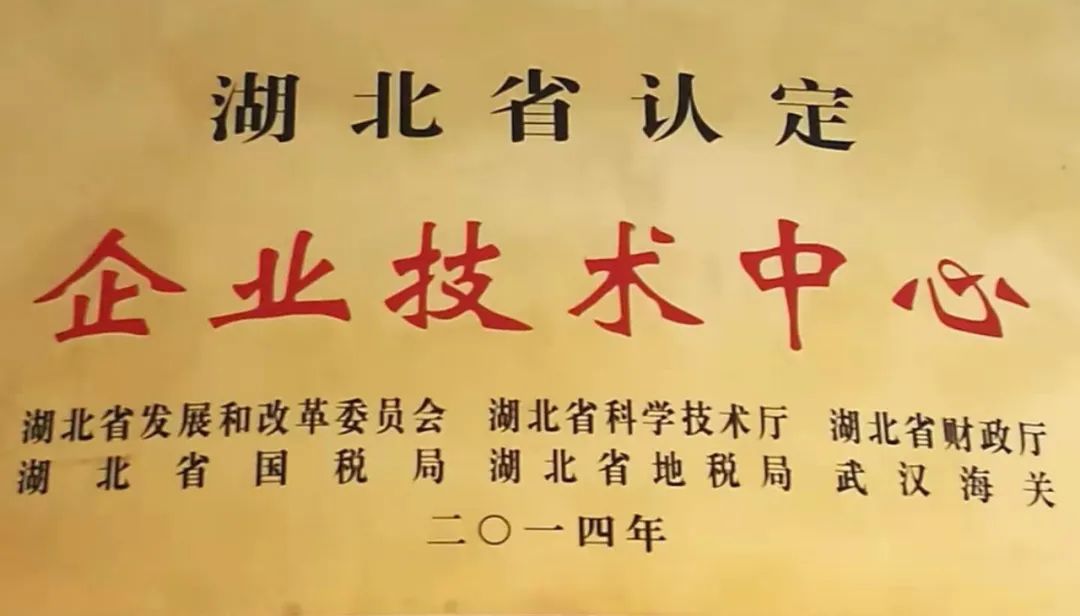 湖北省认定
企业技术中心
湖北省发展和改革委员会 湖北省科学技术厅 湖北省财政厅
湖北省国税局 湖北省地税局 武汉海关
二〇一四年